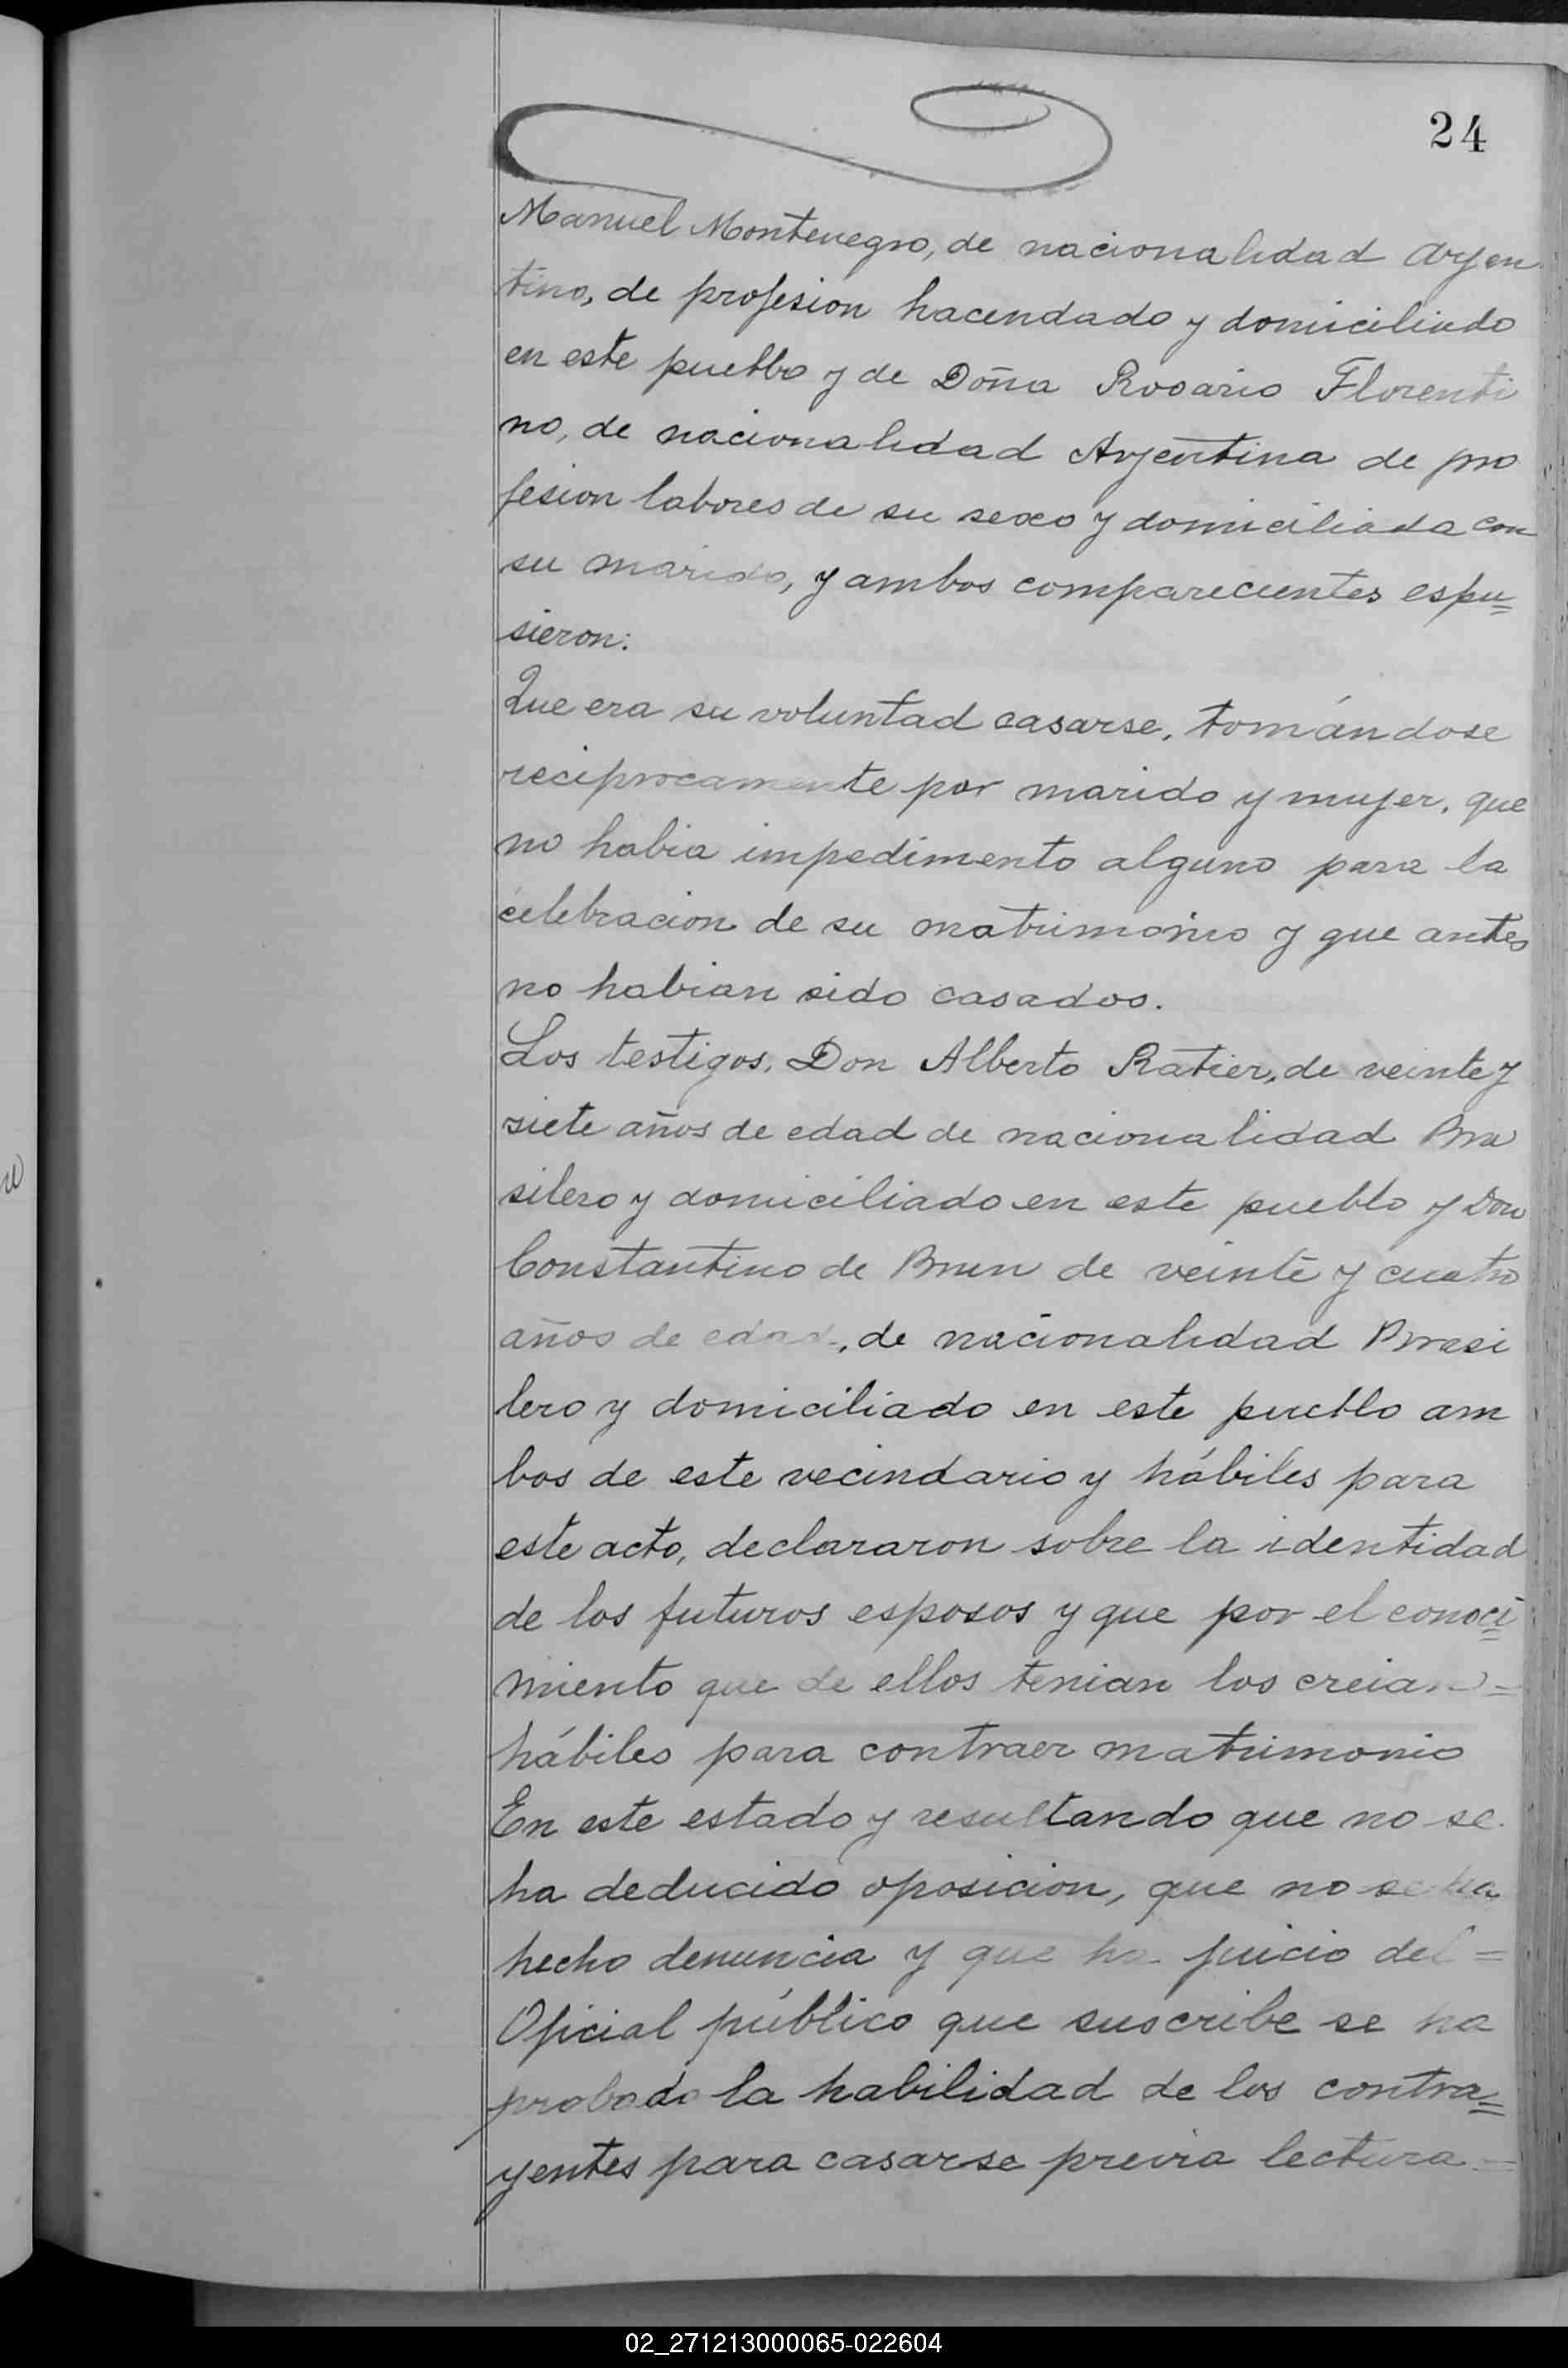 24
Manuel Montenegro, de nacionalidad Argen
tino, de profesion hacendado y domiciliado
en este pueblo y de Doña Rosario Florenti
no, de nacionalidad Argentina de pro
fesion labores de su sexo y domiciliada con
su marido, y ambos comparecientes espu=
sieron:
Que era su voluntad casarse, tomándose
reciprocamente por marido y mujer, que
no habia impedimento alguno para la
celebracion de su matrimonio y que antes
no habian sido casados.
Los testigos, Don Alberto Ratier, de veinte y
siete años de edad de nacionalidad Bra
silero y domiciliado en este pueblo y Don
Constantino de Brun de veinte y cuatro
años de edad, de nacionalidad Brasi
lero y domiciliado en este pueblo am
bos de este vecindario y hábiles para
este acto, declararon sobre la identidad
de los futuros esposos y que por el conoci=
miento que de ellos tenian los creian =
hábiles para contraer matrimonio
En este estado y resultando que no se
ha deducido oposicion, que no se ha
hecho denuncia y que ha juicio del =
Oficial público que suscribe se ha
probado la habilidad de los contra=
yentes para casarse previa lectura =
02_271213000065-022604